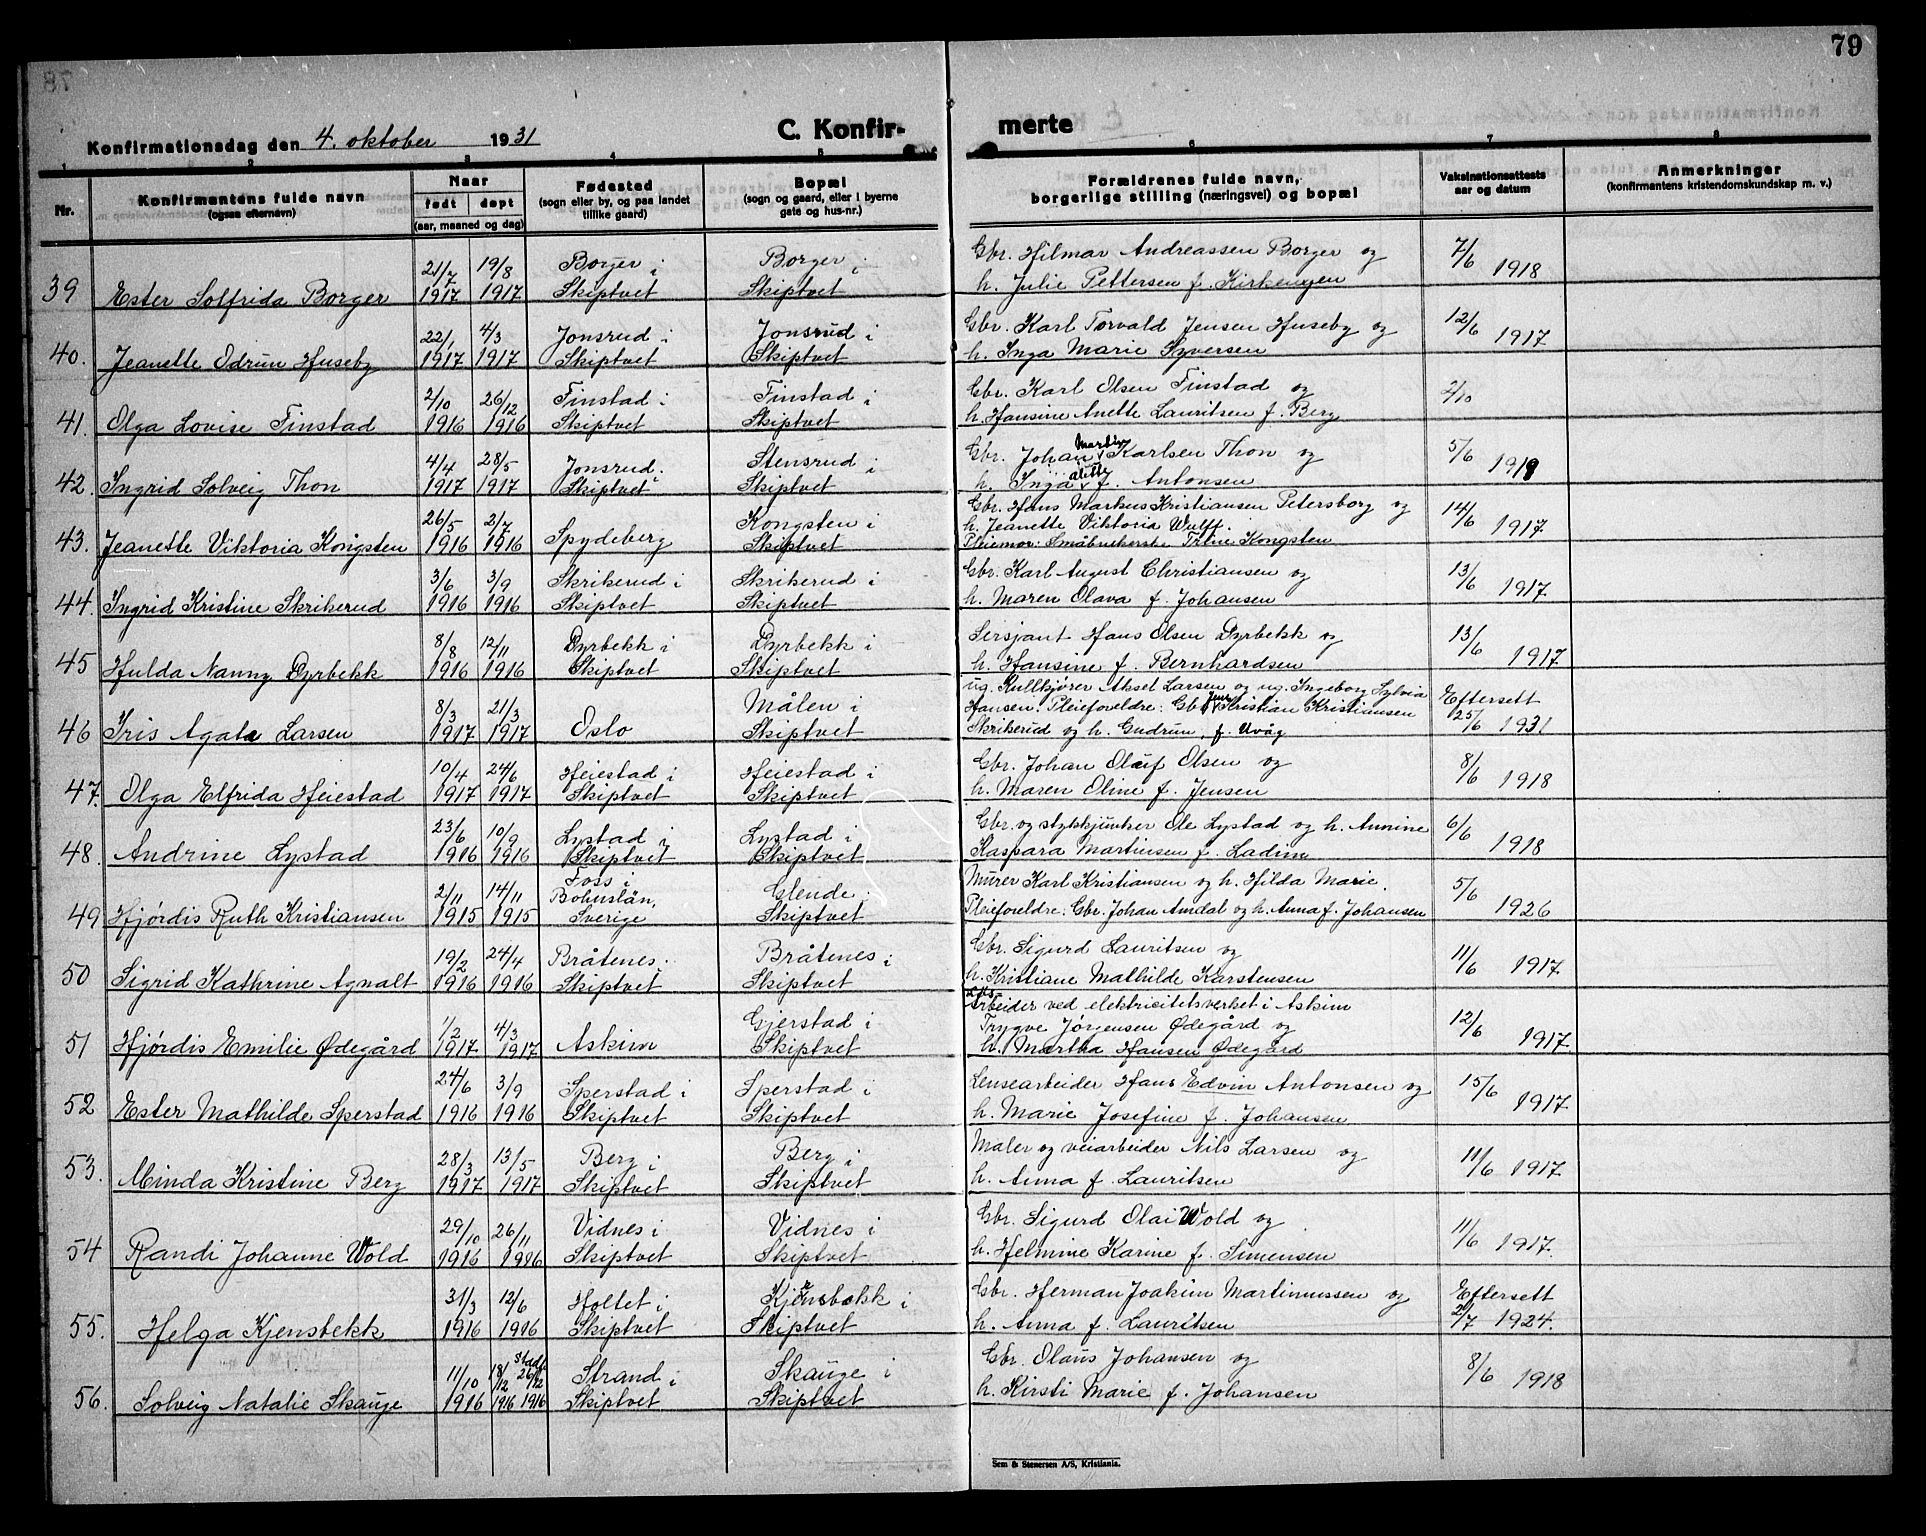 79
Konfirmationsdag den 4. oktober 1931
C. Konfir-merte
1 2 3 4 5 6 7 8
Nr.
Konfirmantens fulde navn
(ogsaa efternavn)
Naar
født døpt
(aar, maaned og dag)
Fødested
(sogn eller by, og paa landet
tillike gaard)
Bopæl
(sogn og gaard, eller i byerne
gate og hus-nr.)
Forældrenes fulde navn,
borgerlige stilling (næringsvei) og bopæl
Vaksinationsattests
aar og datum
Anmerkninger
(konfirmantens kristendomskundskap m. v.)
21/7 19/8 Borger i Borger i Gbr. Hilmar Andreassen Borger og 7/6 1918
39 Ester Solfrida Borger 1917 1917 Skiptvet Skiptvet h. Julie Pettersen f. Kirkengen
22/1 4/3 Jonsrud i Jonsrud i Gbr. Karl Torvald Jensen Huseby og 12/6 1917
40. Jeanette Odrun Huseby 1917 1917 Skiptvet Skiptvet h. Inga Marie Syversen
2/10 26/12 Finstad i Finstad i Gbr. Karl Olsen Finstad og 2/10
41. Olga Lovise Finstad 1916 1916 Skiptvet Skiptvet h. Hansine Anette Lauritsen f. Berg
4/4 28/5 Jonsrud i Stensrud i Gbr. Johan Martin Karlsen Thon og 5/6 1919
42. Ingrid Solveig Thon 1917 1917 Skiptvet Skiptvet h. Inga Alette f. Antonsen
26/5 2/7 Kongsten i Gbr. Hans Markus Kristiansen Petersborg og 14/6 1917
h. Jeanette Viktoria Wulff.
43. Jeanette Viktoria Kongsten 1916 1916 Spydeberg Skiptvet Pleiemor: Småbrukerske Trine Kongsten
3/6 3/9 Skrikerud i Skrikerud i Gbr. Karl August Christiansen og 13/6 1917
44. Ingrid Kristine Skrikerud 1916 1916 Skiptvet Skiptvet h. Maren Olava f. Johansen
8/8 12/11 Dyrbekk i Dyrbekk i Sersjant Hans Olsen Dyrbekk og 13/6 1917
45 Hulda Nanny Dyrbekk 1916 1916 Skiptvet Skiptvet h. Hansine f. Bernhardsen
8/3 21/3 Målen i ug. Kullkjører Aksel Larsen og ug. Ingeborg Sylvia Eftersett
Hansen. Pleieforeldre: Gbr. Jens Kristian Kristiansen 25/6 1931
46 Iris Agate Larsen 1917 1917 Oslo Skiptvet Skrikerud og h. Gudrun, f. Uvåg
10/4 24/6 Heiestad i Heiestad i Gbr. Johan Oluf Olsen og 8/6 1918
47. Olga Elfrida Heiestad 1917 1917 Skiptvet Skiptvet h. Maren Oline f. Jensen
23/6 10/9 Lystad i Lystad i Gbr. og stykkjunker Ole Lystad og h. Annine 6/6 1918
48. Andrine Lystad 1916 1916 Skiptvet Skiptvet Kaspara Martinsen f. Ladim
2/11 14/11 Foss i Bohuslän, Glende i Murer Karl Kristiansen og h. Hilda Marie. 5/6 1926
49 Hjørdis Ruth Kristiansen 1915 1915 Sverige Skiptvet Pleieforeldre: Gbr. Johan Amdal og h. Anna f. Johansen
19/2 24/4 Bråtenes i Bråtenes i Gbr. Sigurd Lauritsen og 11/6 1917
50 Sigrid Kathrine Agnalt 1916 1916 Skiptvet Skiptvet h. Kristiane Mathilde Karstensen
Arbeider ved elektricitetsverket i Askim
1/2 4/3 Gjerstad i Trygve Jørgensen Ødegård og 12/6 1917
51 Hjørdis Emilie Ødegård 1917 1917 Askim Skiptvet h. Martha Hansen Ødegård
24/6 3/9 Sperstad i Sperstad i Lensearbeider Hans Edvin Antonsen og 15/6 1917
52 Ester Mathilde Sperstad 1916 1916 Skiptvet Skiptvet h. Marie Josefine f. Johansen
28/3 13/5 Berg i Berg i Maler og veiarbeider Nils Larsen og 11/6 1917
53. Minda Kristine Berg 1917 1917 Skiptvet Skiptvet h. Anna f. Lauritsen
29/10 26/11 Vidnes i Vidnes i Gbr. Sigurd Olai Wold og 11/6 1917
54 Randi Johanne Wold 1916 1916 Skiptvet Skiptvet h. Helmine Karine f. Simensen
31/3 12/6 Holtet i Kjensbekk i Gbr. Herman Joakim Martinussen og Eftersett
55. Helga Kjensbekk 1916 1916 Skiptvet Skiptvet h. Anna f. Lauritsen 2/7 1924.
11/10 18/12 Stadf. 26/12 Strand i Skauge i Gbr. Olaus Johansen og 8/6 1918
56. Solveig Natalie Skauge 1916 1916 1916 Skiptvet Skiptvet h. Kirsti Marie f. Johansen
Sem & Stenersen A/S, Kristiania.